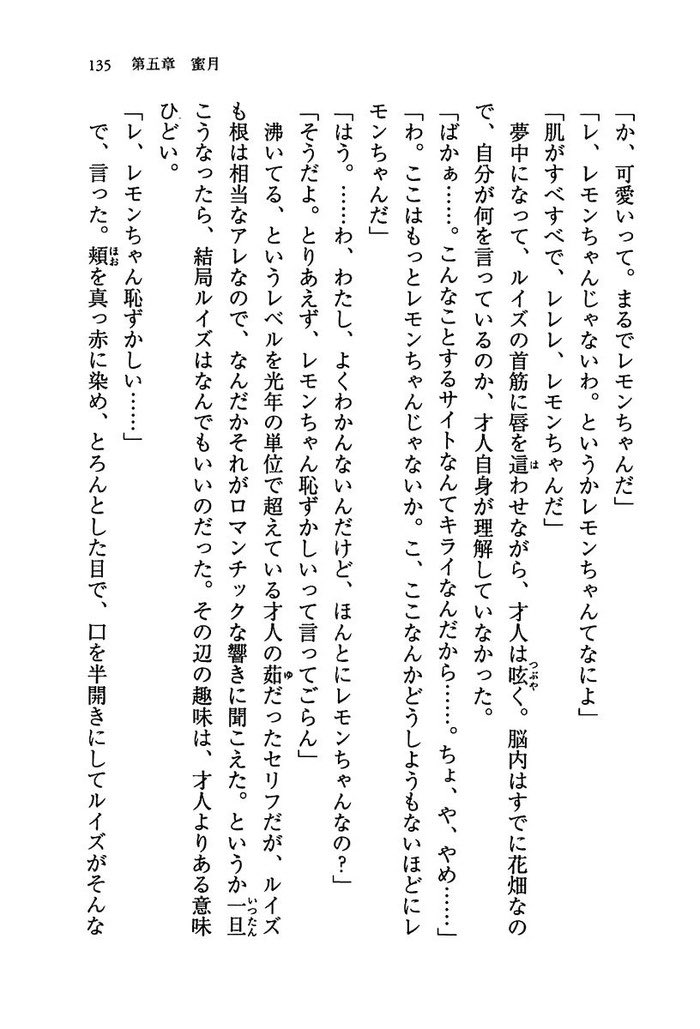 135 第五章 蜜月
「か、可愛いって。まるでレモンちゃんだ」
「レ、レモンちゃんじゃないわ。というかレモンちゃんてなによ」
「肌がすべすべで、レレレ、レモンちゃんだ」
夢中になって、ルイズの首筋に唇を這わせながら、才人は呟く。脳内はすでに花畑なの
で、自分が何を言っているのか、才人自身が理解していなかった。
「ばかぁ……。こんなことするサイトなんてキライなんだから……。ちょ、や、やめ……」
「わ。ここはもっとレモンちゃんじゃないか。こ、ここなんかどうしようもないほどにレ
モンちゃんだ」
「はう。……わ、わたし、よくわかんないんだけど、ほんとにレモンちゃんなの?」
「そうだよ。とりあえず、レモンちゃん恥ずかしいって言ってごらん」
沸いてる、というレベルを光年の単位で超えている才人の茹だったセリフだが、ルイズ
も根は相当なアレなので、なんだかそれがロマンチックな響きに聞こえた。というか一旦
こうなったら、結局ルイズはなんでもいいのだった。その辺の趣味は、才人よりある意味
ひどい。
「レ、レモンちゃん恥ずかしい……」
で、言った。頬を真っ赤に染め、とろんとした目で、口を半開きにしてルイズがそんな